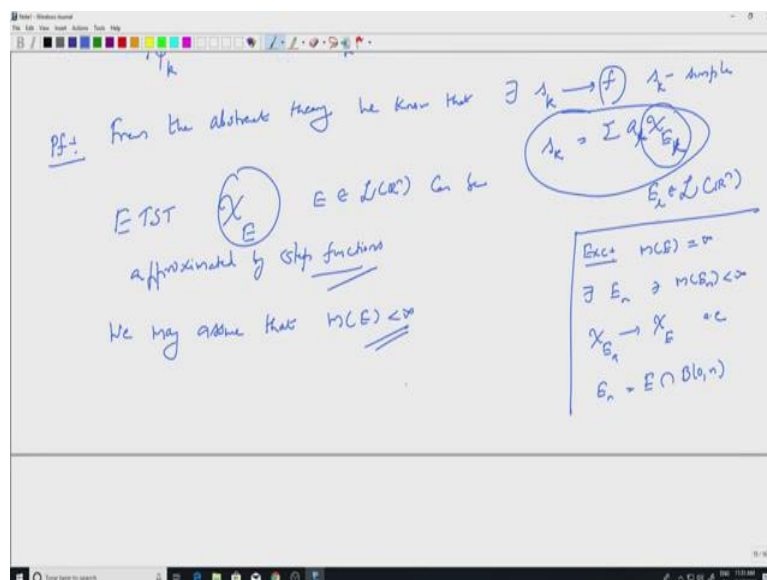 Note1 - Windows Journal
File Edit View Insert Actions Tools Help
ψ_k
Pf: From the abstract theory we know that ∃ s_k → f s_k - simple
s_k = Σ a_k χ_{E_k}
E_k ∈ L(ℝⁿ)
E TST χ_E E ∈ L(ℝⁿ) can be
approximated by step functions
We may assume that m(E) < ∞
Exc: m(E) = ∞
∃ E_n ∋ m(E_n) < ∞
χ_{E_n} → χ_E a.e
E_n = E ∩ B(0,n)
Type here to search
ENG 11:01 AM